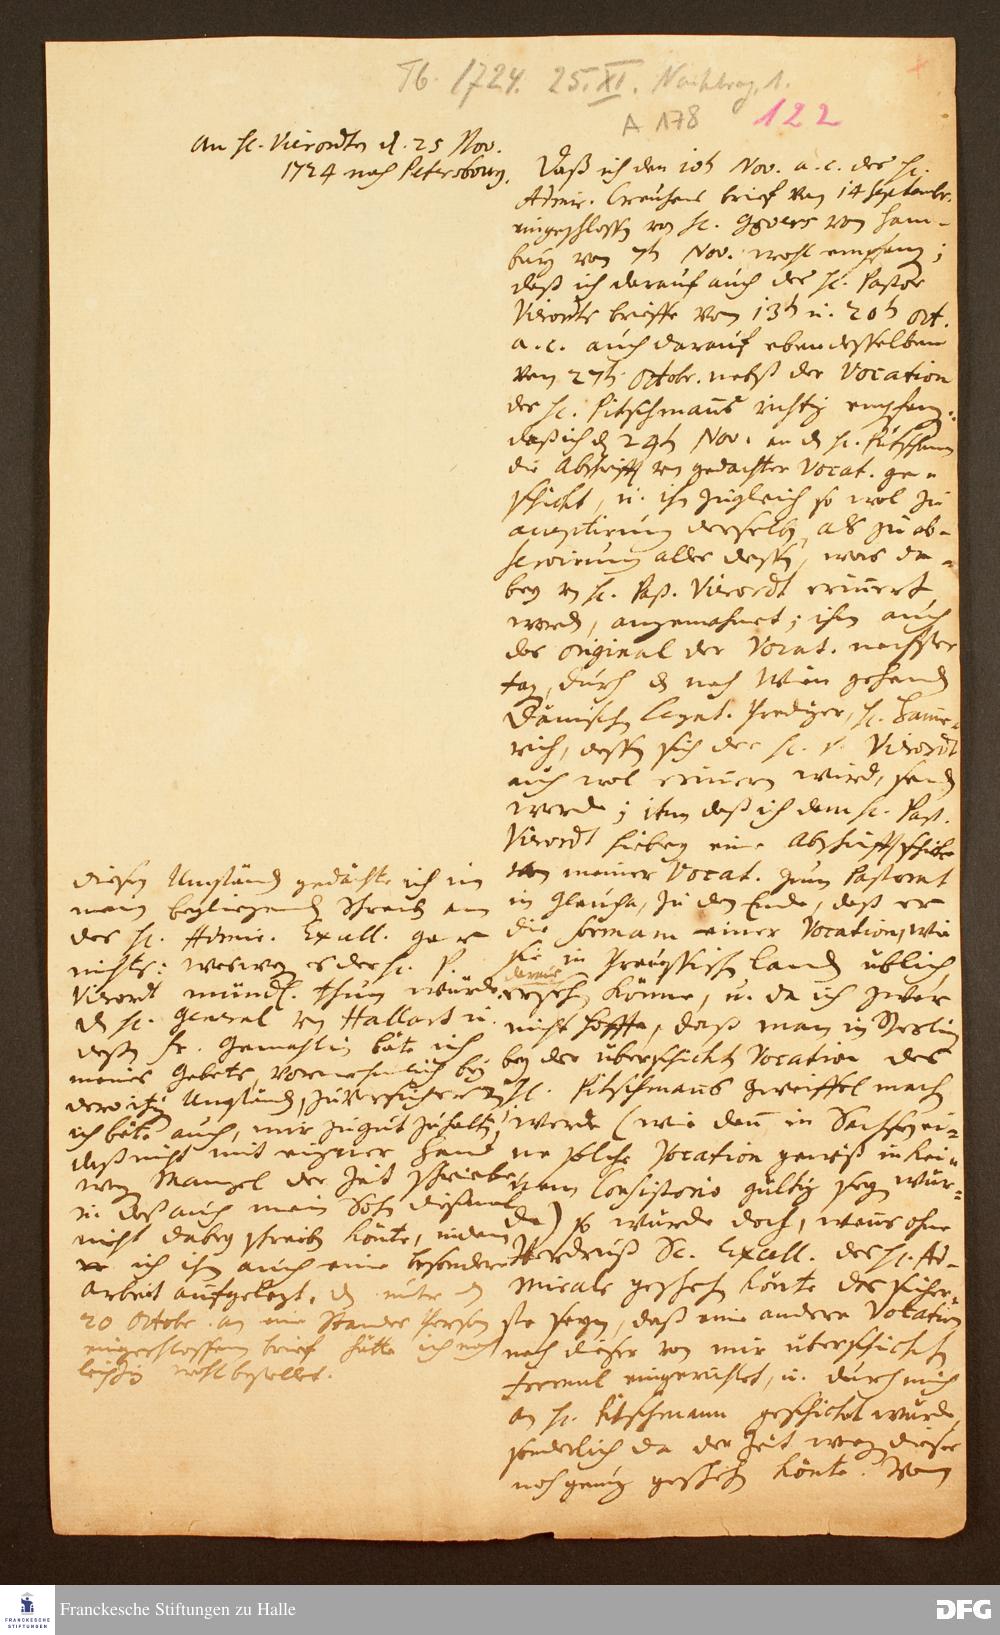 Tb. 1724. 25. XI. Nachtrag, 1.
A 178
122
an H. Vierordten d. 25 Nov.
1724 nach Petersbourg.
Daß ich den 10h Nov. a. c. des H.
Admir. Creuzens brief vom 14 Septembr.
eingeschlossen von H. Govers von Ham-
burg vom 7h Nov. wohl empfang;
daß ich darauf auch des H. Pastor
Vierordts brieffe vom 13h u. 20h Oct.
a. c. auch darauf ebendesselben
vom 27h Octobr. nebst der Vocation
des H. Pitschmanns richtig empfang.
daß ich d 24h Nov. an d H. Pitschman
die Abschrifft von gedachter Vocat. ge-
schickt, u. ihn zugleich so wol zu
acceptirung derselben, als zu ob-
servirung alles dessen, was da-
bey von H. Past. Vierordt erinnert
worden, angemahnet; ihm auch
das original der Vocat. nechster
tag, durch d nach Wien gehend
Dänischen Legat. Prediger, H. Hame-
rich, dessen sich der H. P. Vierordt
auch wol erinnern wird, send
werde; item daß ich dem H. Past.
Vierordt hiebey eine Abschrifft schicke
von meiner Vocat. zum Pastorat
in Glaucha, zu dem Ende, daß er
die formam einer Vocation, wie
sie in Preussischen Landen üblich
daraus
ersehen könne, u. da ich zwar
nicht hoffte, daß man in Berlin
bey der überschickten Vocation des
H. Pitschmanns zweiffel mach
werde (wie denn in Sachsen ei-
ne solche Vocation gewiß in kei-
nem Consistorio gültig seyn wür-
de) so würde doch, wenns ohne
Verdruß Sr. Excell. des H. Ad-
mirals geschehen könte das sicher-
ste seyn, daß eine andere Vocation
nach dieser von mir überschickten
Formul eingerichtet, u. durch mich
an H. Pitschmann geschickt würde,
sonderlich da der Zeit wegen dieses
noch genug geschehen könte. Von
diesen Umständen gedächte ich in
mein beyliegenden Schreiben an
des H. Admir. Excell. gar
nichts: weswegen es der H. P.
Vierordt mündl. thun würde.
d H. General von Hallart u.
dessen Fr. Gemahlin bäte ich
meines Gebets, vornehmlich bey
dero itzigen Umständen, zu versichern
ich bäte auch, mir zu gut zu halten,
daß nicht mit eigner Hand
wegen Mangel der Zeit schriebe
u. daß auch mein Sohn dießmal
nicht dabey schreiben könte, indem
ich ihm auch eine besondere
Arbeit aufgelegt. den unter d
20 Octobr. an eine Standes Person
eingeschlossenen brief hätte ich nach
Leipzig wohl bestellet.
Franckesche Stiftungen zu Halle
FRANCKESCHE
STIFTUNGEN
DFG